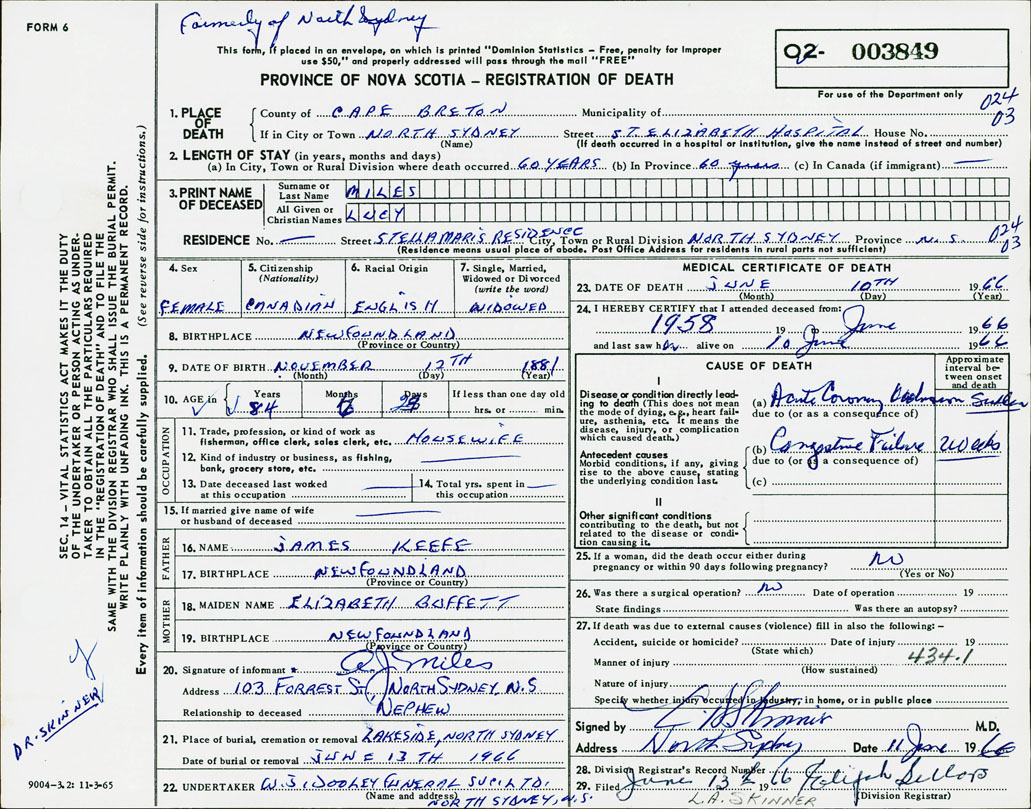 FORM 6
Formerly of North Sydney
This form, if placed in an envelope, on which is printed "Dominion Statistics – Free, penalty for improper
use $50," and properly addressed will pass through the mail "FREE"
PROVINCE OF NOVA SCOTIA – REGISTRATION OF DEATH
02- 003849
For use of the Department only
024
03
1. PLACE OF DEATH
County of CAPE BRETON Municipality of
If in City or Town NORTH SYDNEY Street ST. ELIZABETH HOSPITAL House No.
(Name) (If death occurred in a hospital or institution, give the name instead of street and number)
2. LENGTH OF STAY (in years, months and days)
(a) In City, Town or Rural Division where death occurred 60 YEARS (b) In Province 60 years (c) In Canada (if immigrant) —
3. PRINT NAME OF DECEASED
Surname or Last Name MILES
All Given or Christian Names LUCY
RESIDENCE No. — Street STELLA MARIS RESIDENCE City, Town or Rural Division NORTH SYDNEY Province N.S.
024
03
(Residence means usual place of abode. Post Office Address for residents in rural parts not sufficient)
4. Sex
FEMALE
5. Citizenship
(Nationality)
CANADIAN
6. Racial Origin
ENGLISH
7. Single, Married,
Widowed or Divorced
(write the word)
WIDOWED
8. BIRTHPLACE NEWFOUNDLAND
(Province or Country)
9. DATE OF BIRTH NOVEMBER 12TH 1881
(Month) (Day) (Year)
10. AGE in Years Months Days If less than one day old
84 hrs. or min.
OCCUPATION
11. Trade, profession, or kind of work as
fisherman, office clerk, sales clerk, etc. HOUSEWIFE
12. Kind of industry or business, as fishing,
bank, grocery store, etc.
13. Date deceased last worked
at this occupation
14. Total yrs. spent in
this occupation
15. If married give name of wife
or husband of deceased
FATHER
16. NAME JAMES KEEFE
17. BIRTHPLACE NEWFOUNDLAND
(Province or Country)
MOTHER
18. MAIDEN NAME ELIZABETH BUFFETT
19. BIRTHPLACE NEWFOUNDLAND
(Province or Country)
20. Signature of informant Miles
Address 103 FORREST ST, NORTH SYDNEY, N.S
Relationship to deceased NEPHEW
21. Place of burial, cremation or removal LAKESIDE, NORTH SYDNEY
Date of burial or removal JUNE 13TH 1966
22. UNDERTAKER W.J. DOOLEY FUNERAL LTD.
(Name and address)
NORTH SYDNEY, N.S.
MEDICAL CERTIFICATE OF DEATH
23. DATE OF DEATH JUNE 10TH 1966
(Month) (Day) (Year)
24. I HEREBY CERTIFY that I attended deceased from:
1958 19 to June 1966
and last saw her alive on 10 June 1966
CAUSE OF DEATH
Approximate
interval between
onset
and death
I
Disease or condition directly leading
to death (This does not mean
the mode of dying, e.g., heart failure,
asthenia, etc. It means the
disease, injury, or complication
which caused death.)
(a) Acute Coronary Occlusion Sudden
due to (or as a consequence of)
Antecedent causes
Morbid conditions, if any, giving
rise to the above cause, stating
the underlying condition last.
(b) Congestive Failure 2 weeks
due to (or as a consequence of)
(c)
II
Other significant conditions
contributing to the death, but not
related to the disease or condition
causing it.
25. If a woman, did the death occur either during
pregnancy or within 90 days following pregnancy? NO
(Yes or No)
26. Was there a surgical operation? No Date of operation 19
State findings Was there an autopsy?
27. If death was due to external causes (violence) fill in also the following: –
Accident, suicide or homicide? Date of injury 19
(State which) 434.1
Manner of injury
(How sustained)
Nature of injury
Specify whether injury occurred in industry, in home, or in public place
Signed by M.D.
Address North Sydney Date 11 June 1966
28. Division Registrar's Record Number
29. Filed June 13 1966
(Division Registrar)
L.A. SKINNER
SEC. 14 – VITAL STATISTICS ACT MAKES IT THE DUTY
OF THE UNDERTAKER OR PERSON ACTING AS UNDERTAKER
TO OBTAIN ALL THE PARTICULARS REQUIRED
IN THE "REGISTRATION OF DEATH" AND TO FILE THE
SAME WITH THE DIVISION REGISTRAR WHO SHALL ISSUE THE BURIAL PERMIT.
WRITE PLAINLY WITH UNFADING INK. THIS IS A PERMANENT RECORD.
Every item of information should be carefully supplied. (See reverse side for instructions.)
DR. SKINNER
9004-3.2: 11-3-65